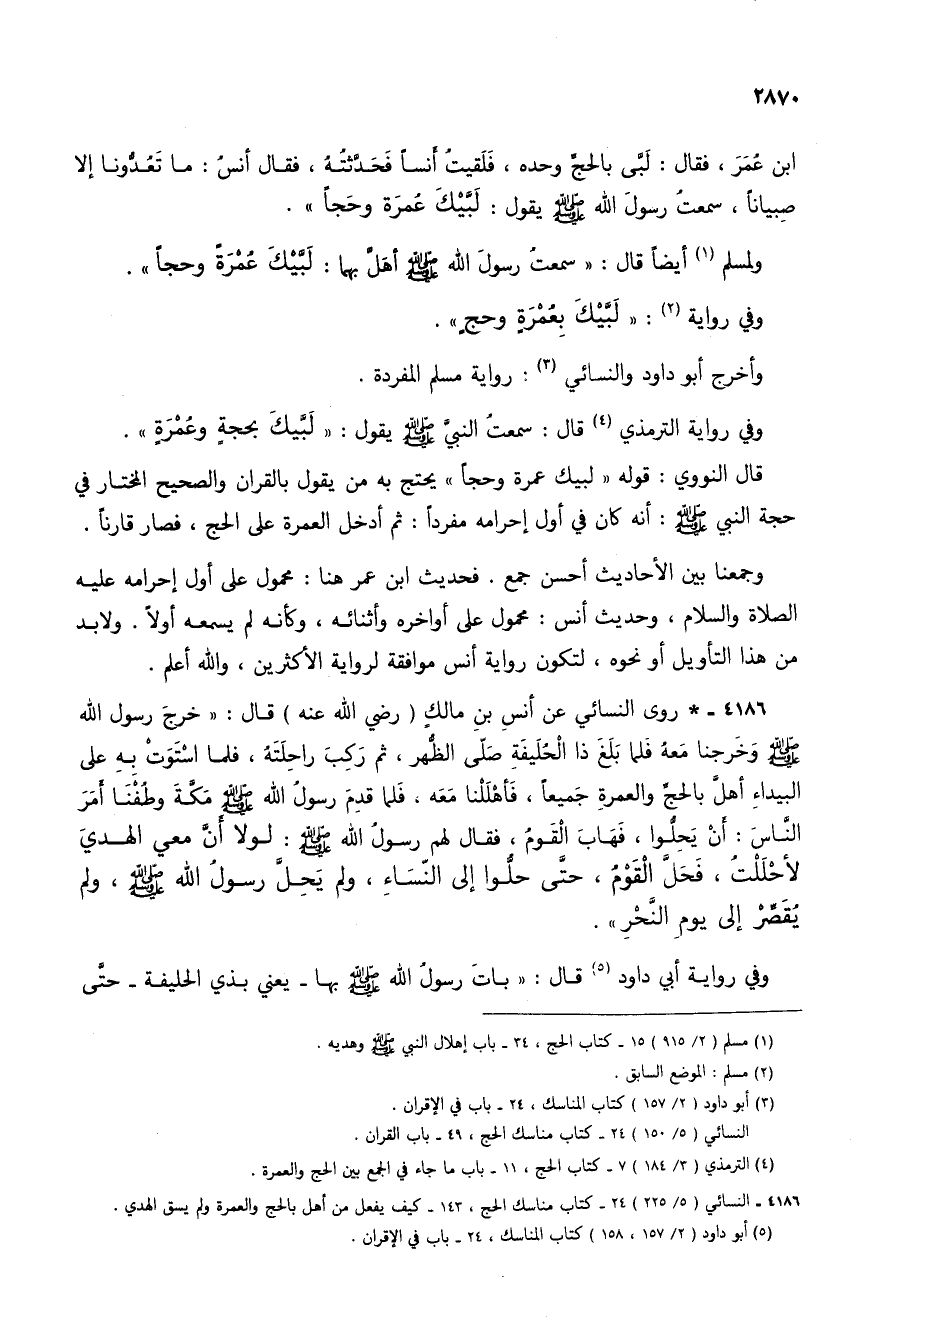 ٢٨٧٠
ابن عُمَرَ ، فقال : لَبَّى بالحجِّ وحده ، فَلَقيتُ أَنساً فَحَدَّثتُهُ ، فقال أنسُ : ما تَعُدُّونا إلا
صبياناً ، سمعتُ رسولَ الله ﷺ يقول : لَبَّيْكَ عُمرَة وحَجاً » .
ولمسلم (١) أيضاً قال : « سمعتُ رسولَ الله ﷺ أهلَّ بهما : لَبَّيْكَ عُمْرَةً وحجاً » .
وفي رواية (٢) : « لَبَّيْكَ بِعُمْرَةٍ وحجٍ » .
وأخرج أبو داود والنسائي (٣) : رواية مسلم المفردة .
وفي رواية الترمذي (٤) قال : سمعتُ النبيَّ ﷺ يقول : « لَبَّيكَ بحجةٍ وعُمْرَةٍ » .
قال النووي : قوله « لبيك عمرة وحجاً » يحتج به من يقول بالقران والصحيح المختار في
حجة النبي ﷺ : أنه كان في أول إحرامه مفرداً : ثم أدخل العمرة على الحج ، فصار قارناً .
وجمعنا بين الأحاديث أحسن جمع . فحديث ابن عمر هنا : محمول على أول إحرامه عليه
الصلاة والسلام ، وحديث أنس : محمول على أواخره وأثنائه ، وكأنه لم يسمعه أولاً . ولابد
من هذا التأويل أو نحوه ، لتكون رواية أنس موافقة لرواية الأكثرين ، والله أعلم .
٤١٨٦ ـ * روى النسائي عن أنسِ بنِ مالكٍ ( رضي الله عنه ) قال : « خرجَ رسول الله
ﷺ وَخَرجنا مَعهُ فَلما بَلَغَ ذا الحُلَيفَةِ صَلّى الظُهر ، ثم رَكِبَ راحِلَتَهُ ، فلما اسْتَوَتْ بِهِ على
البيداءِ أهلَّ بالحجِّ والعمرةِ جَميعاً ، فَأهْلَلْنا مَعَه ، فَلما قدِمَ رسولُ الله ﷺ مَكَّةَ وطُفْنَا أمَرَ
النَّاسَ : أنْ يَحلُّوا ، فَهَابَ الْقَومُ ، فقال لهم رسولُ الله ﷺ : لولا أنَّ معي الهديَ
لأحْلَلْتُ ، فَحَلَّ الْقَوْمُ ، حتَّى حلُّوا إلى النّسَاءِ ، ولم يَحِلَّ رسولُ الله ﷺ ، ولم
يُقَصِّرْ إلى يومِ النَّحْرِ » .
وفي رواية أبي داود (٥) قال : « باتَ رسولُ الله ﷺ بها ـ يعني بذي الحليفة ـ حتَّى
(١) مسلم ( ٢/ ٩١٥ ) ١٥ ـ كتاب الحج ، ٣٤ ـ باب إهلال النبي ﷺ وهديه .
(٢) مسلم : الموضع السابق .
(٣) أبو داود ( ٢/ ١٥٧ ) كتاب المناسك ، ٢٤ ـ باب في الإقران .
النسائي ( ٥/ ١٥٠ ) ٢٤ ـ كتاب مناسك الحج ، ٤٩ ـ باب القران .
(٤) الترمذي ( ٣/ ١٨٤ ) ٧ ـ كتاب الحج ، ١١ ـ باب ما جاء في الجمع بين الحج والعمرة .
٤١٨٦ ـ النسائي ( ٥/ ٢٢٥ ) ٢٤ ـ كتاب مناسك الحج ، ١٤٣ ـ كيف يفعل من أهل بالحج والعمرة ولم يسق الهدي .
(٥) أبو داود ( ٢/ ١٥٧ ، ١٥٨ ) كتاب المناسك ، ٢٤ ـ باب في الإقران .